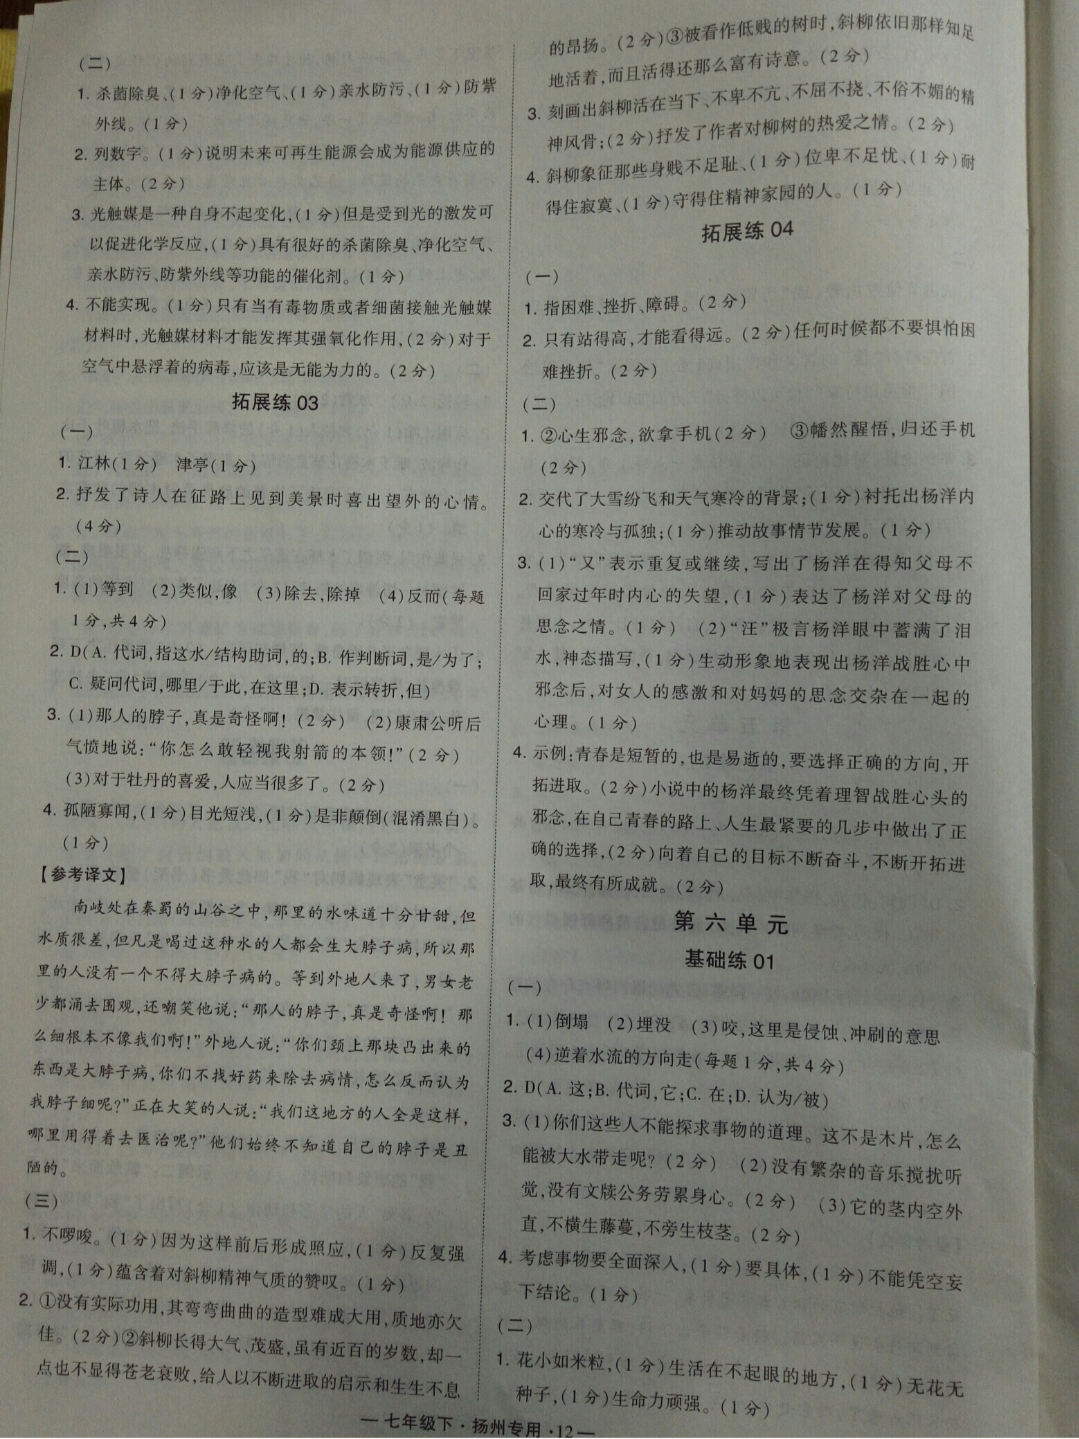 (二)
1. 杀菌除臭、(1分)净化空气、(1分)亲水防污、(1分)防紫
外线。(1分)
2. 列数字。(1分)说明未来可再生能源会成为能源供应的
主体。(2分)
3. 光触媒是一种自身不起变化,(1分)但是受到光的激发可
以促进化学反应,(1分)具有很好的杀菌除臭、净化空气、
亲水防污、防紫外线等功能的催化剂。(1分)
4. 不能实现。(1分)只有当有毒物质或者细菌接触光触媒
材料时,光触媒材料才能发挥其强氧化作用,(2分)对于
空气中悬浮着的病毒,应该是无能为力的。(2分)
拓展练03
(一)
1. 江林(1分) 津亭(1分)
2. 抒发了诗人在征路上见到美景时喜出望外的心情。
(4分)
(二)
1. (1)等到 (2)类似,像 (3)除去,除掉 (4)反而(每题
1分,共4分)
2. D(A. 代词,指这水/结构助词,的;B. 作判断词,是/为了;
C. 疑问代词,哪里/于此,在这里;D. 表示转折,但)
3. (1)那人的脖子,真是奇怪啊!(2分) (2)康肃公听后
气愤地说:“你怎么敢轻视我射箭的本领!”(2分)
(3)对于牡丹的喜爱,人应当很多了。(2分)
4. 孤陋寡闻,(1分)目光短浅,(1分)是非颠倒(混淆黑白)。
(1分)
【参考译文】
南岐处在秦蜀的山谷之中,那里的水味道十分甘甜,但
水质很差,但凡是喝过这种水的人都会生大脖子病,所以那
里的人没有一个不得大脖子病的。等到外地人来了,男女老
少都涌去围观,还嘲笑他说:“那人的脖子,真是奇怪啊!那
么细根本不像我们啊!”外地人说:“你们颈上那块凸出来的
东西是大脖子病,你们不找好药来除去病情,怎么反而认为
我脖子细呢?”正在大笑的人说:“我们这地方的人全是这样,
哪里用得着去医治呢?”他们始终不知道自己的脖子是丑
陋的。
(三)
1. 不啰唆。(1分)因为这样前后形成照应,(1分)反复强
调,(1分)蕴含着对斜柳精神气质的赞叹。(1分)
2. ①没有实际功用,其弯弯曲曲的造型难成大用,质地亦欠
佳。(2分)②斜柳长得大气、茂盛,虽有近百的岁数,却一
点也不显得苍老衰败,给人以不断进取的启示和生生不息
的昂扬。(2分)③被看作低贱的树时,斜柳依旧那样知足
地活着,而且活得还那么富有诗意。(2分)
3. 刻画出斜柳活在当下、不卑不亢、不屈不挠、不俗不媚的精
神风骨;(2分)抒发了作者对柳树的热爱之情。(2分)
4. 斜柳象征那些身贱不足耻、(1分)位卑不足忧、(1分)耐
得住寂寞、(1分)守得住精神家园的人。(1分)
拓展练04
(一)
1. 指困难、挫折、障碍。(2分)
2. 只有站得高,才能看得远。(2分)任何时候都不要惧怕困
难挫折。(2分)
(二)
1. ②心生邪念,欲拿手机(2分) ③幡然醒悟,归还手机
(2分)
2. 交代了大雪纷飞和天气寒冷的背景;(1分)衬托出杨洋内
心的寒冷与孤独;(1分)推动故事情节发展。(1分)
3. (1)“又”表示重复或继续,写出了杨洋在得知父母不
回家过年时内心的失望,(1分)表达了杨洋对父母的
思念之情。(1分) (2)“汪”极言杨洋眼中蓄满了泪
水,神态描写,(1分)生动形象地表现出杨洋战胜心中
邪念后,对女人的感激和对妈妈的思念交杂在一起的
心理。(1分)
4. 示例:青春是短暂的,也是易逝的,要选择正确的方向,开
拓进取。(2分)小说中的杨洋最终凭着理智战胜心头的
邪念,在自己青春的路上、人生最紧要的几步中做出了正
确的选择,(2分)向着自己的目标不断奋斗,不断开拓进
取,最终有所成就。(2分)
第六单元
基础练01
(一)
1. (1)倒塌 (2)埋没 (3)咬,这里是侵蚀、冲刷的意思
(4)逆着水流的方向走(每题1分,共4分)
2. D(A. 这;B. 代词,它;C. 在;D. 认为/被)
3. (1)你们这些人不能探求事物的道理。这不是木片,怎么
能被大水带走呢?(2分) (2)没有繁杂的音乐搅扰听
觉,没有文牍公务劳累身心。(2分) (3)它的茎内空外
直,不横生藤蔓,不旁生枝茎。(2分)
4. 考虑事物要全面深入,(1分)要具体,(1分)不能凭空妄
下结论。(1分)
(二)
1. 花小如米粒,(1分)生活在不起眼的地方,(1分)无花无
种子,(1分)生命力顽强。(1分)
—七年级下·扬州专用·12—